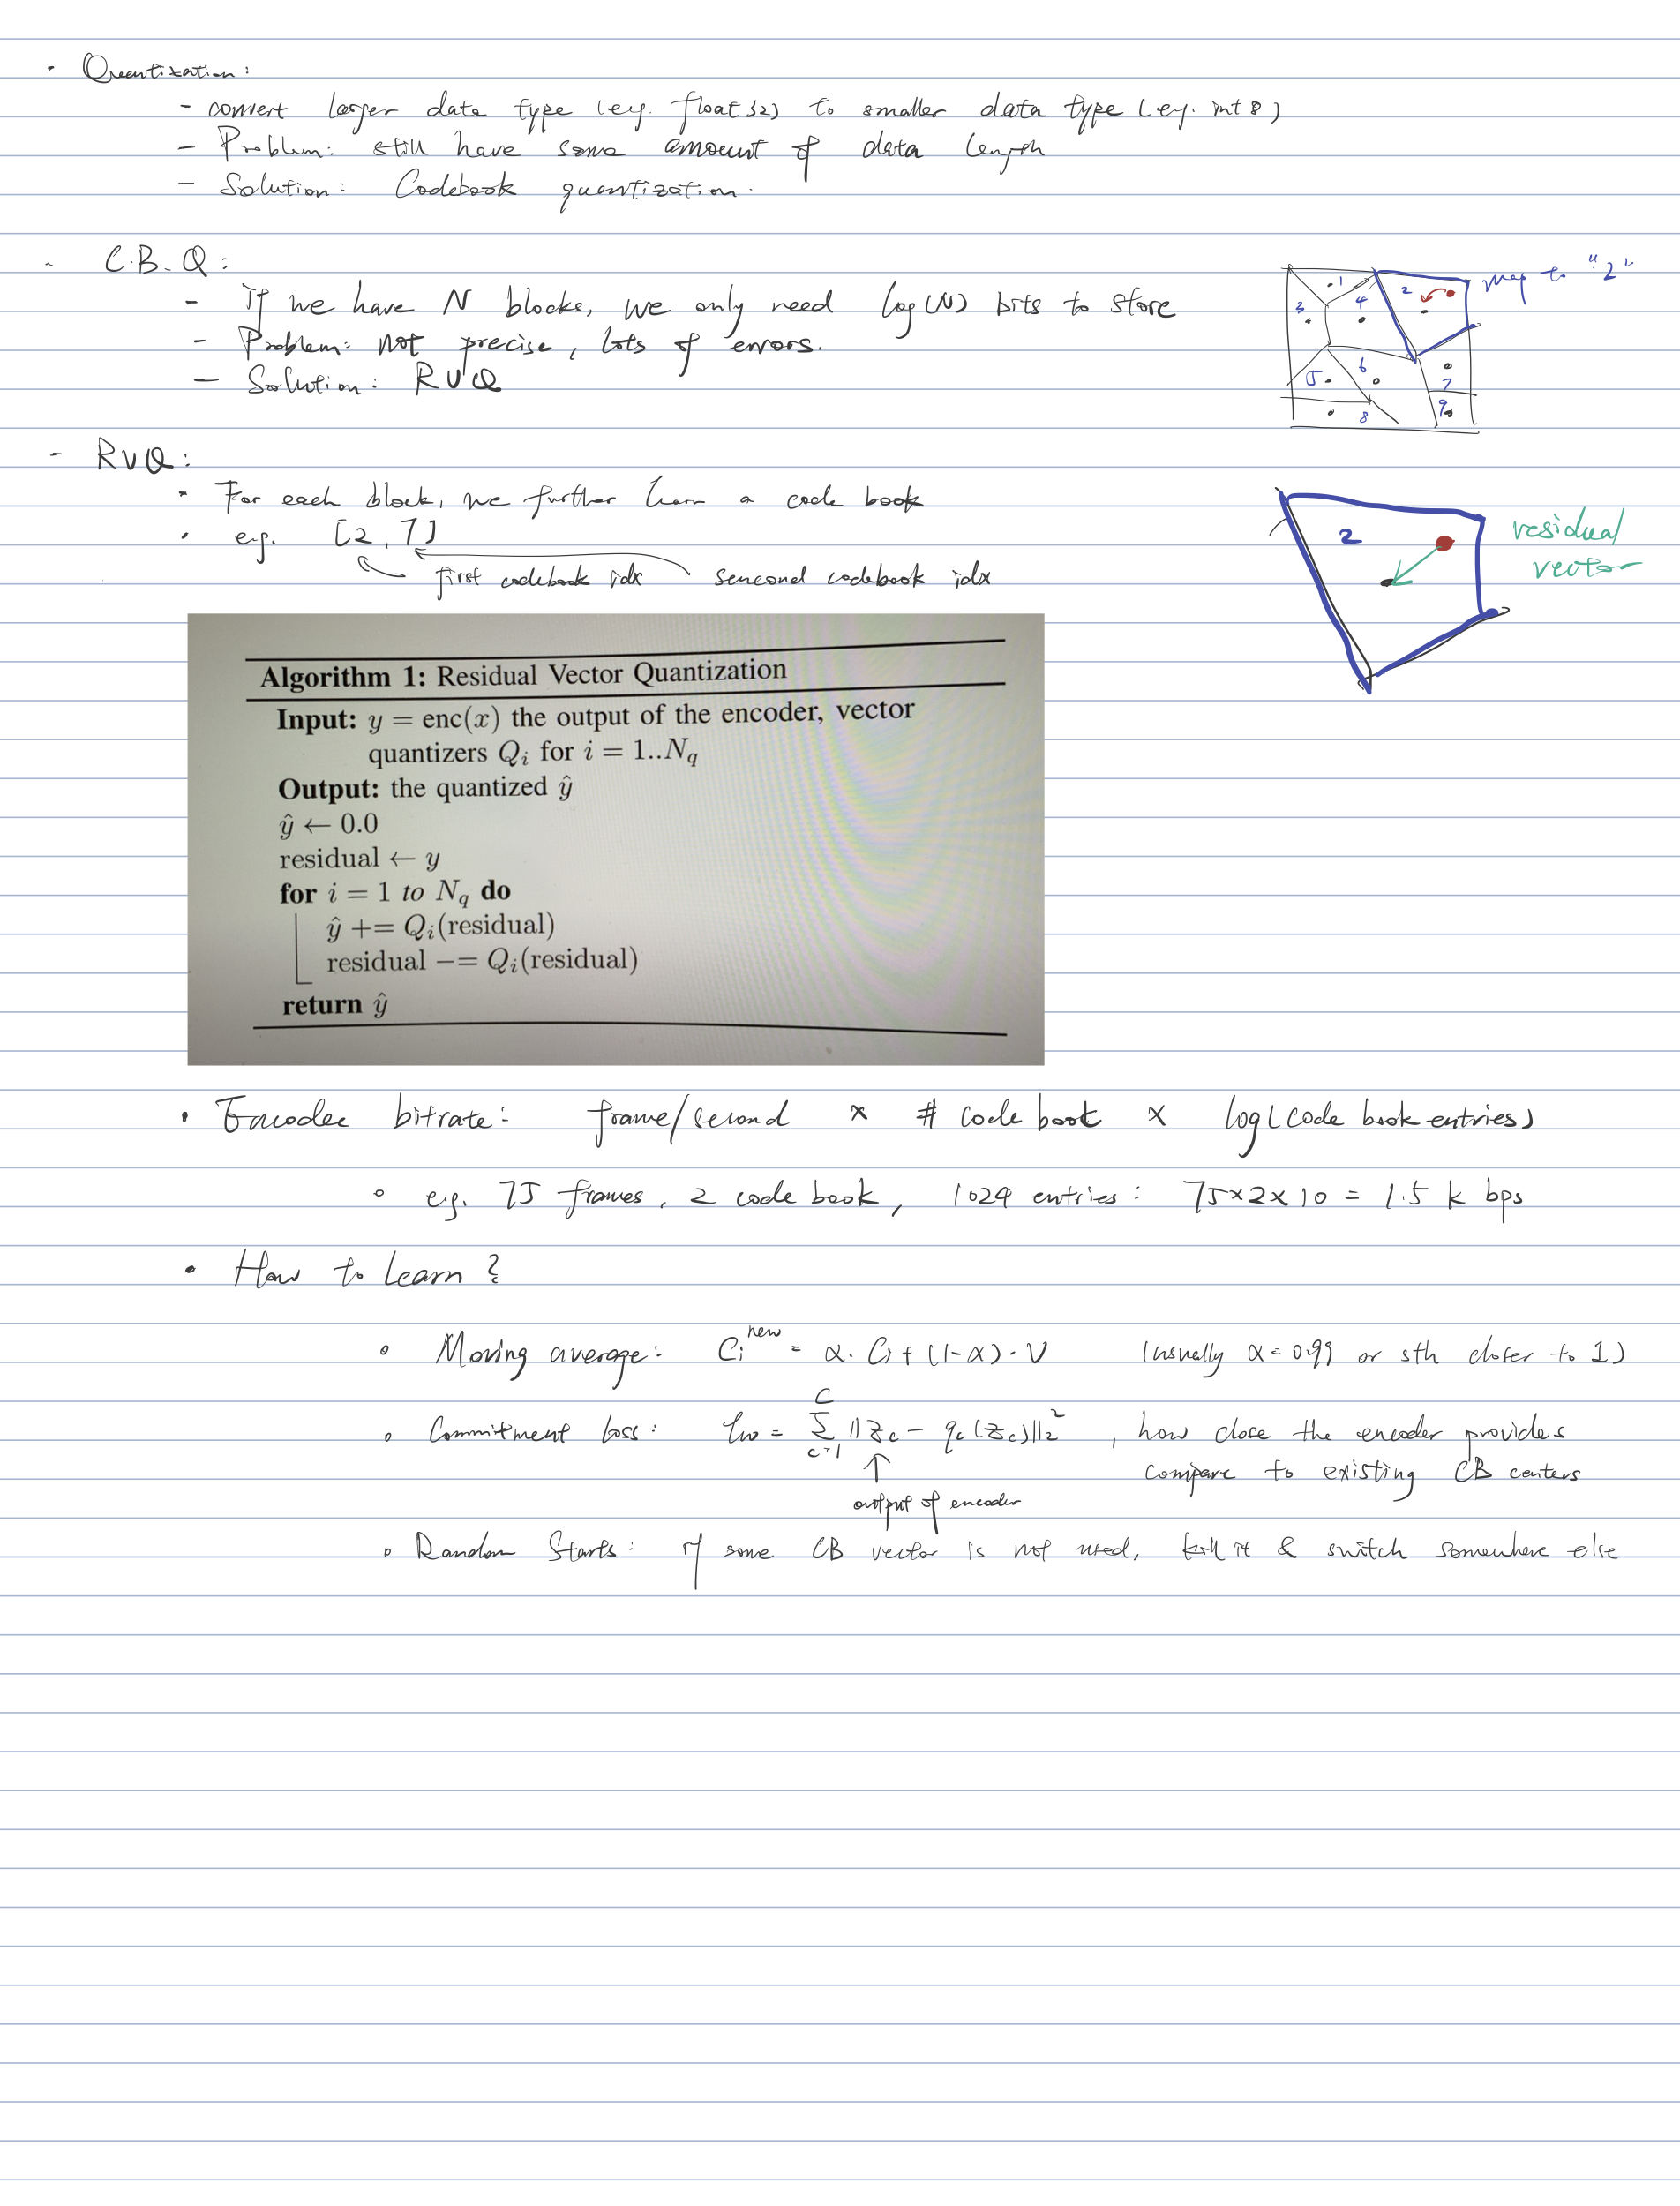 · Quantization:
- convert larger data type (eg. float 32) to smaller data type (eg. int 8)
- Problem: still have same amount of data length
- Solution: Codebook quantization.
- C.B.Q:
- If we have N blocks, we only need log(N) bits to store
- Problem: not precise, lots of errors.
- Solution: RVQ
1 2 3 4 5 6 7 8 9
map to "2"
- RVQ:
· For each block, we further learn a code book
· eg. [2, 7]
first codebook idx sencond codebook idx
2
residual
vector
Algorithm 1: Residual Vector Quantization
Input: y = enc(x) the output of the encoder, vector
quantizers Qᵢ for i = 1..N_q
Output: the quantized ŷ
ŷ ← 0.0
residual ← y
for i = 1 to N_q do
ŷ += Qᵢ(residual)
residual −= Qᵢ(residual)
return ŷ
· Encodec bitrate: frame/second × # code book × log(code book entries)
∘ eg. 75 frames, 2 code book, 1024 entries: 75×2×10 = 1.5 k bps
· How to learn?
∘ Moving average: Cᵢ^new = α·Cᵢ + (1-α)·V (usually α=0.99 or sth closer to 1)
∘ Commitment loss: l_w = Σ_{c=1}^{C} ||z_c - q_c(z_c)||₂², how close the encoder provides
compare to existing CB centers
↑
output of encoder
∘ Random Starts: if some CB vector is not used, kill it & switch somewhere else